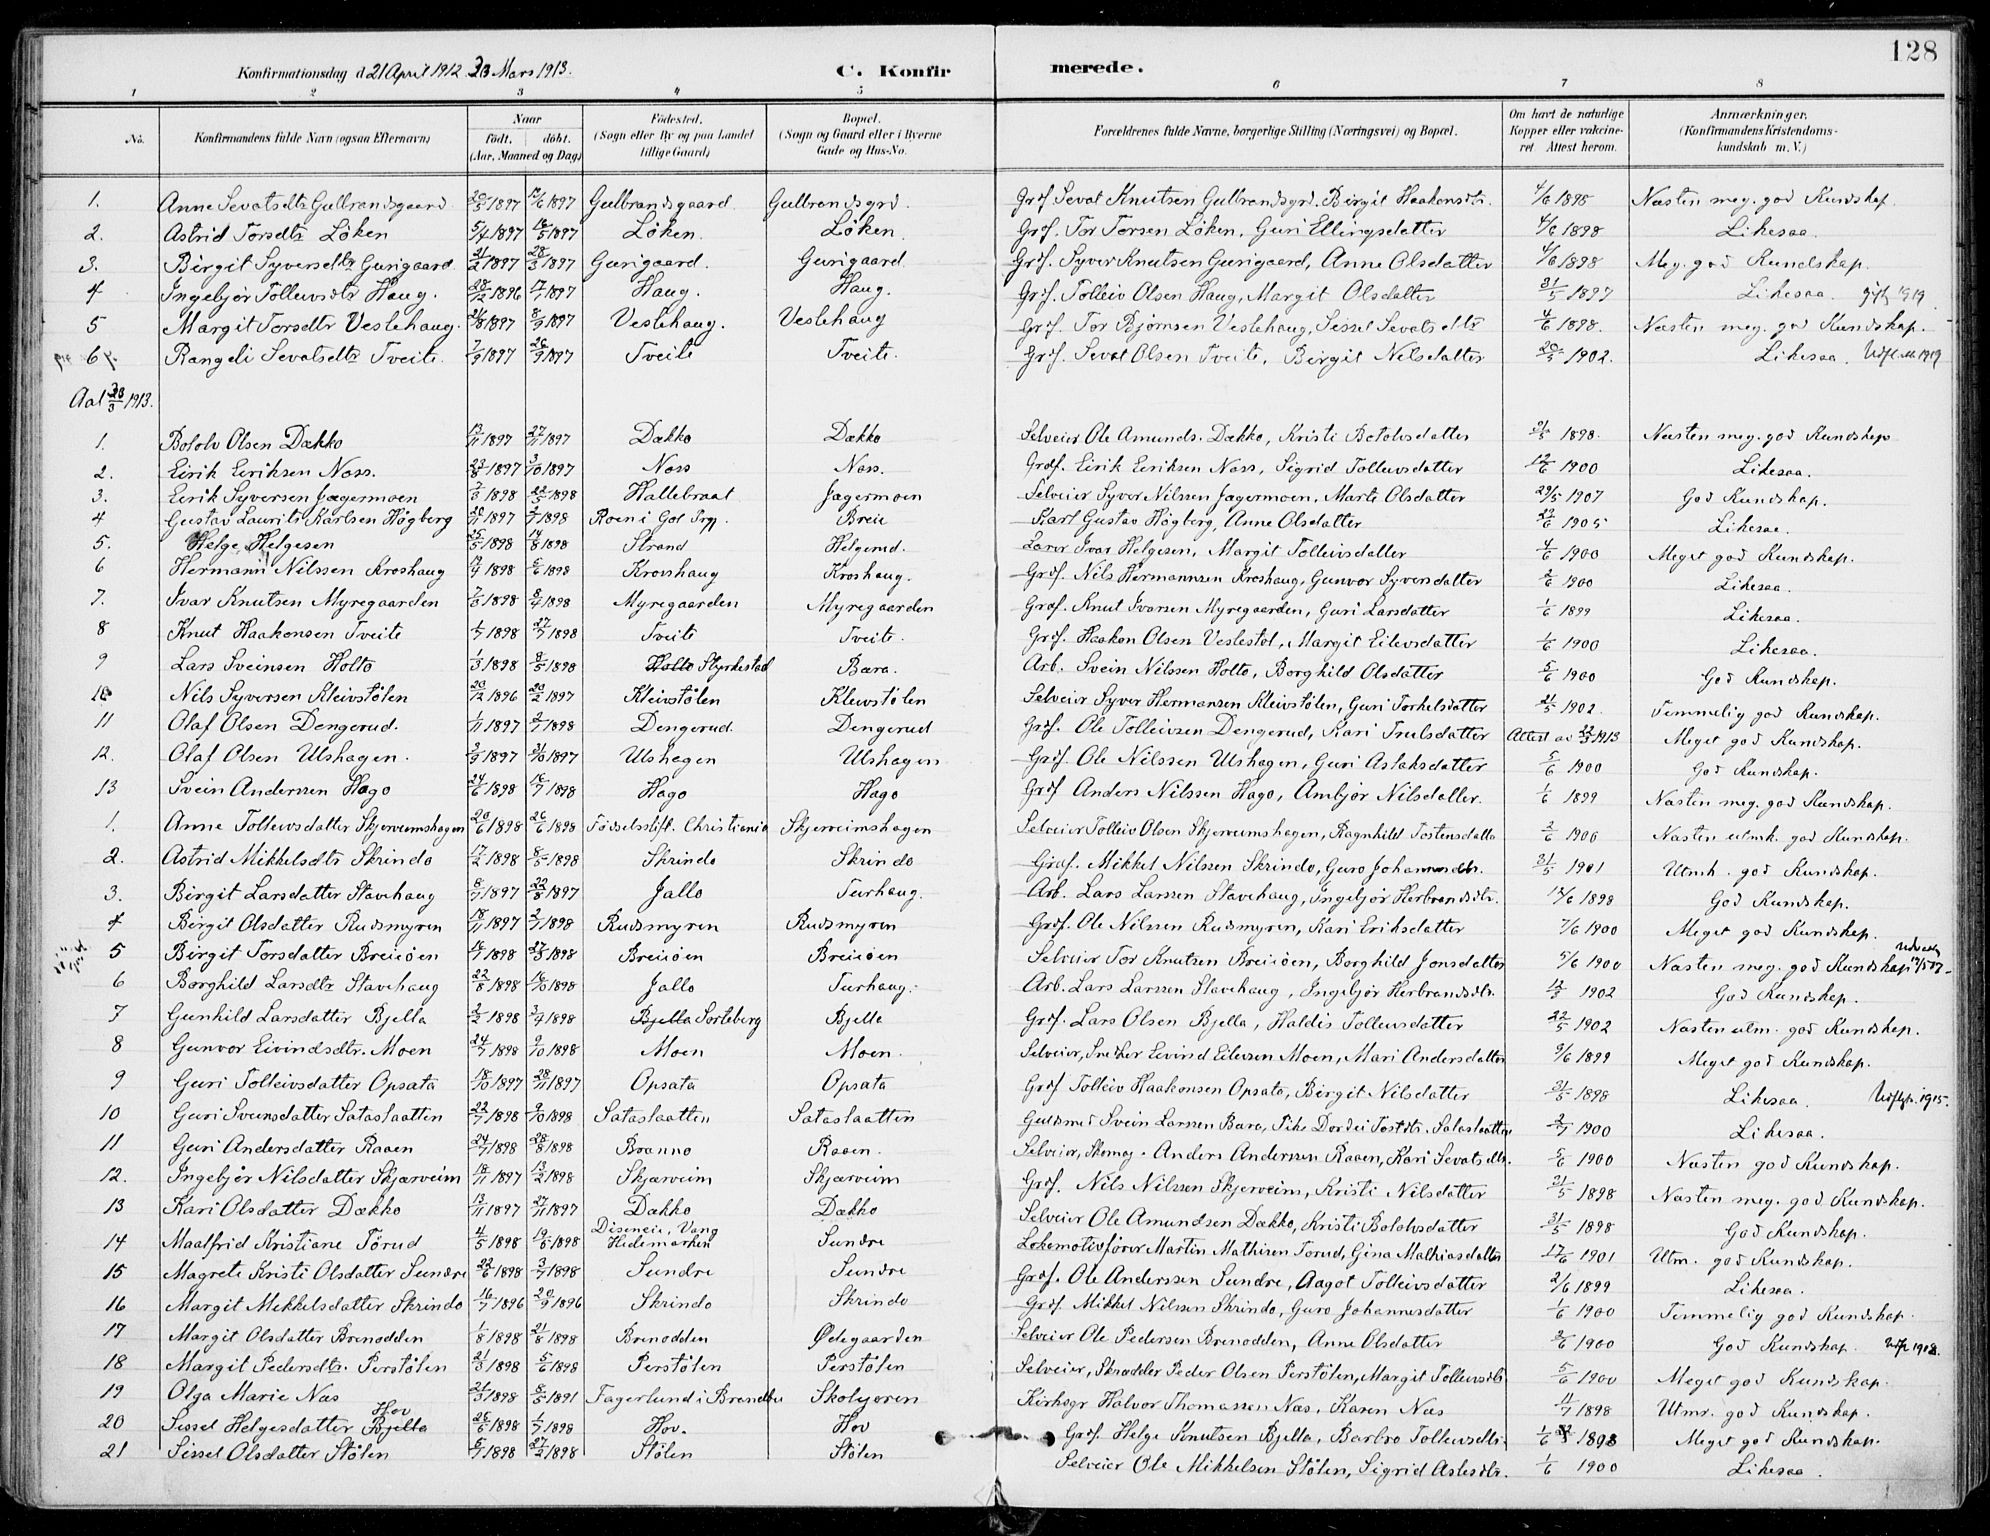 128
Konfirmationsdag d. 21 April 1912. 23 Mars 1913. C. Konfirmerede.
1 2 3 4 5 6 7 8
No. Konfirmandens fulde Navn (ogsaa Efternavn) Naar født, døbt. (Aar, Maaned og Dag) Fødested. (Sogn eller By og paa Landet tillige Gaard) Bopæl. (Sogn og Gaard eller i Byerne Gade og Hus-No. Forældrenes fulde Navne, borgerlige Stilling (Næringsvei) og Bopæl. Om havt de naturlige Kopper eller vakcineret. Attest herom. Anmærkninger. (Konfirmandens Kristendomskundskab m. V.)
1. Anne Sevatsdtr Gulbrandsgaard 20/5 1897 /6 1897 Gulbrandsgaard Gulbrandsgrd. Grdf. Sevat Knutsen Gulbrandsgrd. Birgit Haakonsdtr. 4/6 1898 Næsten meg. god Kundskap.
2. Astrid Torsdtr Løken 5/4 1897 16/5 1897 Løken. Løken. Grdf. Tor Torsen Løken, Guri Ellingsdatter 4/6 1898 Likesaa.
3. Birgit Syversdtr Gurigaard 21/2 1897 28/3 1897 Gurigaard. Gurigaard. Grdf. Syver Knutsen Gurigaard, Anne Olsdatter 4/6 1898 Meg. god Kundskap.
4 Ingebjør Tolleivsdtr Haug. 28/12 1896 17/1 1897 Haug. Haug. Grdf. Tolleiv Olsen Haug, Margit Olsdatter 31/5 1897 Likesaa. gift 1919
5 Margit Torsdtr Veslehaug. 21/8 1897 8/9 1897 Veslehaug. Veslehaug Grdf. Tor Bjørnsen Veslehaug, Sissel Sevatsdtr 4/6 1898. Næsten meg. god Kundskap.
6 Rangdi Sevatsdtr Tveite. 7/9 1897 26/9 1897 Tveite Tveite. Grdf. Sevat Olsen Tveite, Birgit Nilsdatter 20/5 1902. Likesaa. 1919
Aal 23/3 1913.
1. Botolv Olsen Dækko 13/11 1897 27/11 1897 Dækko Dækko Selveier Ole Amunds. Dækko, Kristi Botolvsdatter 31/5 1898. Næsten meg. god Kundskap
2. Eirik Eiriksen Noss. 23/8 1897 3/10 1897 Noss Noss. Grdf. Eirik Eiriksen Noss, Sigrid Tolleivsdatter 12/6 1900 Likesaa.
3. Eirik Syversen Jægermoen 7/3 1898 22/5 1898 Hallebraat Jægermoen Selveier Syver Nilssen Jægermoen, Marte Olsdatter 29/5 1907 God Kundskap.
4 Gustav Laurits Karlsen Høgberg 20/11 1897 2/7 1898 Roen i Gol Prgj. Breie Karl Gustav Høgberg, Anne Olsdatter 23/6 1905 Likesaa.
5. Helge Helgesen 25/5 1898 14/8 1898 Strand Helgerud. Lærer Ivar Helgesen, Margit Tolleivsdatter 4/6 1900 Meget god Kundskap.
6 Hermann Nilssen Kroshaug 17/4 1898 5/6 1898 Kroshaug Kroshaug. Grdf. Nils Hermannsen Kroshaug, Gunvor Syversdatter 2/6 1900 Likesaa.
7. Ivar Knutsen Myregaarden 7/3 1898 8/4 1898 Myregaarden Myregaarden Grdf. Knut Ivarsen Myregaarden, Guri Larsdatter 1/6 1899 Likesaa.
8 Knut Haakonsen Tveite 1/7 1898 27/7 1898 Tveite Tveite. Grdf. Haakon Olsen Veslestøl, Margit Eilevsdatter 1/6 1900 Likesaa.
9 Lars Sveinsen Holto 1/3 1898 8/5 1898 Holto Styrkestad Bæra. Arb. Svein Nilssen Holto, Borghild Olsdatter 5/6 1900 God Kundskap.
10 Nils Syversen Kleivstølen 20/12 1896 20/2 1897 Kleivstølen Kleivstølen Selveier Syver Hermansen Kleivstølen, Guri Torkelsdatter 21/5 1902 Temmelig god Kundskap.
11 Olaf Olsen Dengerud. 1/11 1897 2/7 1898 Dengerud. Dengerud Grdf. Ole Tolleivsen Dengerud, Kari Trulsdatter Attest av 22/3 1913 Meget god Kundskap.
12. Olaf Olsen Ulshagen. 3/9 1897 31/10 1897 Ulshagen Ulshagen Grdf. Ole Nilssen Ulshagen, Guri Aslaksdatter 5/6 1900 God Kundskap.
13 Svein Anderssen Hago 24/6 1898 16/7 1898 Hago Hago Grdf Anders Nilssen Hago, Ambjør Nilsdatter. 1/6 1899 Næsten meg. god Kundskap.
1. Anne Tolleivsdatter Skjerveimshagen 20/6 1898 26/6 1898 Fødselsstift. Christiania Skjerveimshagen Selveier Tolleiv Olsen Skjerveimshagen, Ragnhild Tostensdatter 2/6 1900 Næsten utmk. god Kundskap.
2. Astrid Mikkelsdtr Skrindo 17/2 1898 8/5 1898 Skrindo Skrindo Grdf. Mikkel Nilssen Skrindo, Guro Johannesdtr. 31/5 1901 Utmk. god Kundskap.
3. Birgit Larsdatter Stavehaug 8/7 1897 22/8 1897 Jallo Turhaug. Arb. Lars Larssen Stavehaug, Ingebjør Herbrandsdtr. 12/6 1898 God Kundskap.
4 Birgit Olsdatter Rudsmyren 18/11 1897 2/7 1898 Rudsmyren Rudsmyren Grdf. Ole Nilssen Rudsmyren, Kari Eriksdatter 7/6 1900 Meget god Kundskap.
5 Birgit Torsdatter Breiiøen 16/7 1898 28/8 1898 Breiiøen Breiiøen Selveier Tor Knutsen Breiiøen, Borghild Jonsdatter 5/6 1900 Næsten meg. god Kundskap
6 Borghild Larsdtr Stavehaug 22/8 1898 16/10 1898 Jallo Turhaug. Arb. Lars Larssen Stavehaug, Ingebjør Herbrandsdtr. 12/3 1902 God Kundskap.
7 Gunhild Larsdatter Bjella 2/2 1898 3/4 1898 Bjella Sorteberg Bjella Grdf. Lars Olsen Bjella, Haldis Tolleivsdatter 22/5 1902 Næsten utm. god Kundskap.
8 Gunvor Eivindsdtr. Moen 24/7 1898 9/10 1898 Moen Moen. Selveier, Snedker Eivind Eilevsen Moen, Mari Andersdatter 9/6 1899 Meget god Kundskap.
9 Guri Tolleivsdatter Opsata 18/10 1897 28/11 1897 Opsata Opsata Grdf Tolleiv Haakonsen Opsata, Birgit Nilsdatter 31/5 1898 Likesaa. 1915.
10 Guri Sveinsdatter Sataslaatten 22/7 1898 9/10 1898 Sataslaatten Sataslaatten Gutsmed Svein Larssen Bæra, Pike Dordei Tostdtr. Sataslaatten 2/7 1900 Likesaa.
11 Guri Andersdatter Raaen 24/7 1898 28/8 1898 Brænno Raaen. Selveier, Skomag. Anders Anderssen Raaen, Kari Sevatsdtr. 5/6 1900 Næsten god Kundskap.
12. Ingebjør Nilsdatter Skjærveim 18/11 1897 13/2 1898 Skjærveim Skjærveim Grdf. Nils Nilssen Skjerveim, Kristi Nilsdatter 21/5 1898 Næsten meg. god Kundskap.
13 Kari Olsdatter Dækko 13/11 1897 27/11 1897 Dækko Dækko Selveier Ole Amundsen Dækko, Kristi Botolvsdatter 31/5 1898 God Kundskap.
14 Maalfrid Kristiane Torud 4/5 1898 19/6 1898 Diseneie, Vang Hedemarken Sundre Lokomotivfører Martin Mathisen Torud, Gina Mathiasdatter 17/6 1901 Utm. god Kundskap.
15 Magrete Kristi Olsdatter Sundre 22/6 1898 3/7 1898 Sundre Sundre Grdf. Ole Anderssen Sundre, Aagot Tolleivsdatter 2/6 1899 Likesaa.
16 Margit Mekkelsdatter Skrindo 16/7 1896 20/9 1896 Skrindo Skrindo Grdf. Mikkel Nilssen Skrindo, Guro Johannesdatter 1/6 1900 Temmelig god Kundskap.
17 Margit Olsdatter Brenodden 1/8 1898 21/8 1898 Brenodden Ødegaarden Selveier Ole Pedersen Brenodden, Anne Olsdatter 2/6 1900 God Kundskap.
18 Margit Pedersdtr. Perstølen 21/3 1898 5/6 1898 Perstølen Perstølen Selveier, Skredder Peder Olsen Perstølen, Margit Tolleivsdtr 5/6 1900 Meget god Kundskap.
19 Olga Marie Næs 21/3 1898 8/5 1891 Fagerlund i Brandbu Skolejoren Kirksgr Halvor Thomassen Næs, Karen Næs 11/7 1898 Utmr. god Kundskap.
20 Sissel Helgesdatter Bjella Hov 25/6 1898 1/7 1898 Hov. Hov Grdf. Helge Knutsen Bjella, Barbro Tolleivsdtr. 1/6 1898 Meget god Kundskap.
21 Sissel Olsdatter Stølen 5/1 1898 27/2 1898 Stølen Stølen Selveier Ole Mikkelsen Stølen, Sigrid Aslesdtr. 1/6 1900 Likesaa.